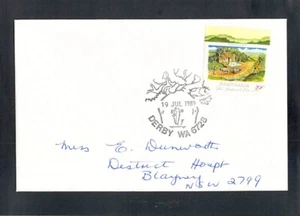 19 JUL 1985
DERBY WA 6728
Miss E. Dunworth
District Hospt
Blayney
NSW 2799